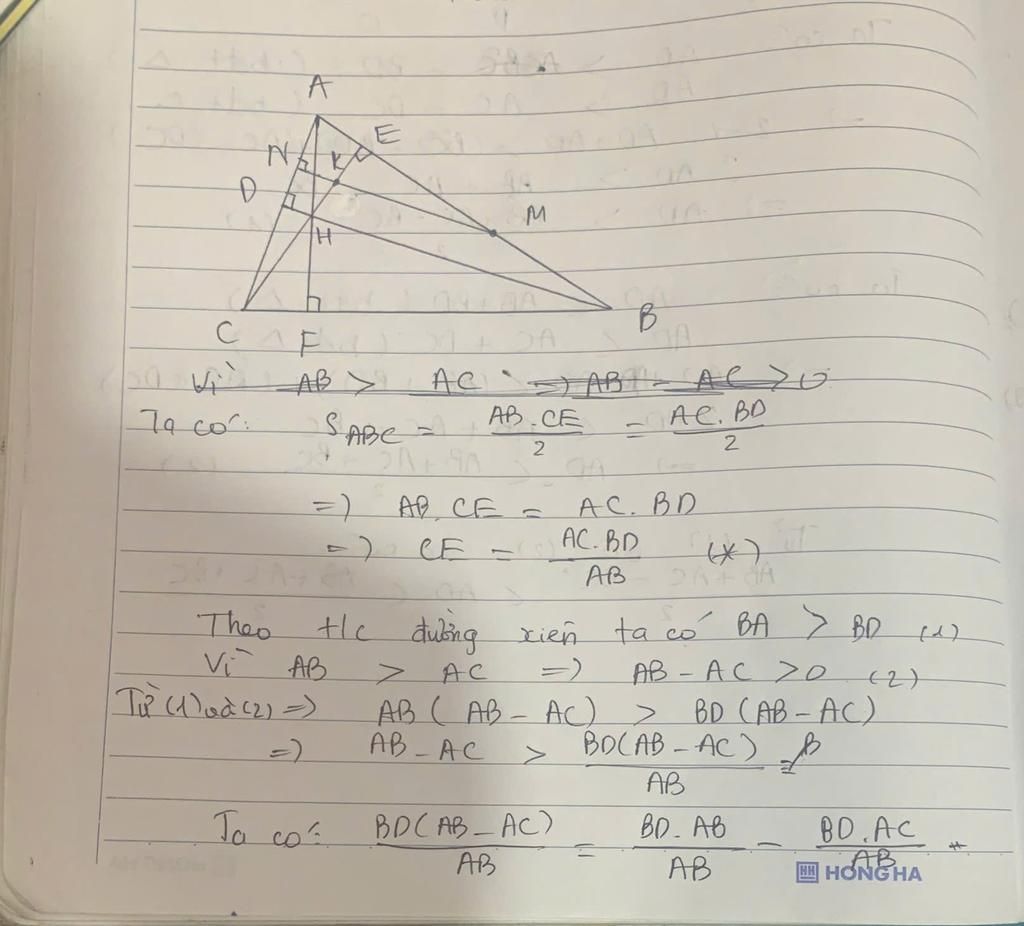 A
N
K
E
D
M
H
C
F
B
Vì AB > AC => AB - AC > 0
Ta có: S_ABC = AB.CE/2 = AC.BD/2
=> AB.CE = AC.BD
=> CE = AC.BD/AB (*)
Theo t/c đường xiên ta có BA > BD (1)
Vì AB > AC => AB - AC > 0 (2)
Từ (1) và (2) => AB(AB - AC) > BD(AB - AC)
=> AB - AC > BD(AB - AC)/AB
Ta có: BD(AB - AC)/AB = BD.AB/AB - BD.AC/AB
HONG HA